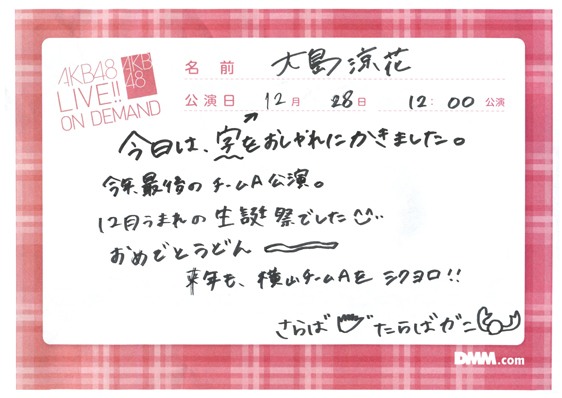 AKB48
LIVE!!
ON DEMAND
AKB
48
名前 大島涼花
公演日 12月 28日 12:00 公演
今日は、字をおしゃれにかきました。
今年最後のチームA公演。
12月うまれの生誕祭でした
おめでとうどん
来年も、横山チームAを シクヨロ!!
さらば たらばがに
DMM.com